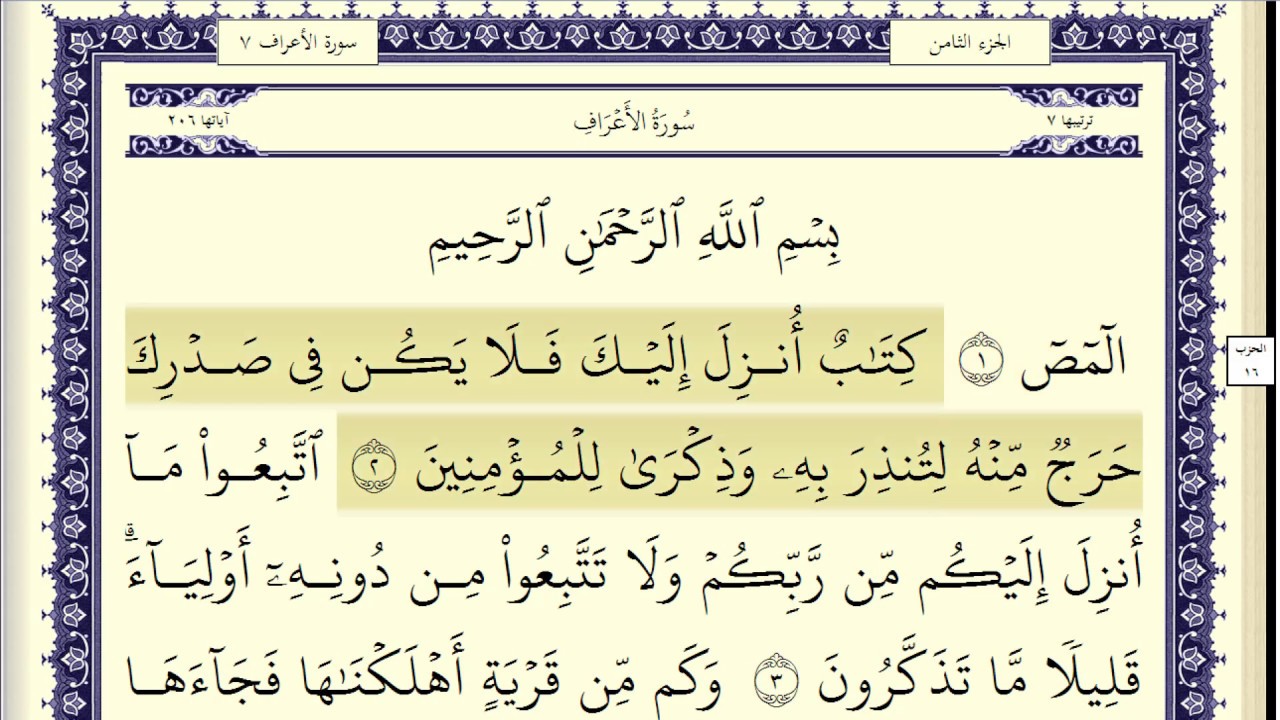 الجزء الثامن
سورة الأعراف ٧
ترتيبها ٧
سُورَةُ الأَعْرَافِ
آياتها ٢٠٦
بِسْمِ ٱللَّهِ ٱلرَّحْمَٰنِ ٱلرَّحِيمِ
الٓمٓصٓ ١ كِتَٰبٌ أُنزِلَ إِلَيْكَ فَلَا يَكُن فِى صَدْرِكَ
الحزب
١٦
حَرَجٌ مِّنْهُ لِتُنذِرَ بِهِۦ وَذِكْرَىٰ لِلْمُؤْمِنِينَ ٢ ٱتَّبِعُوا۟ مَآ
أُنزِلَ إِلَيْكُم مِّن رَّبِّكُمْ وَلَا تَتَّبِعُوا۟ مِن دُونِهِۦٓ أَوْلِيَآءَ ۗ
قَلِيلًا مَّا تَذَكَّرُونَ ٣ وَكَم مِّن قَرْيَةٍ أَهْلَكْنَٰهَا فَجَآءَهَا